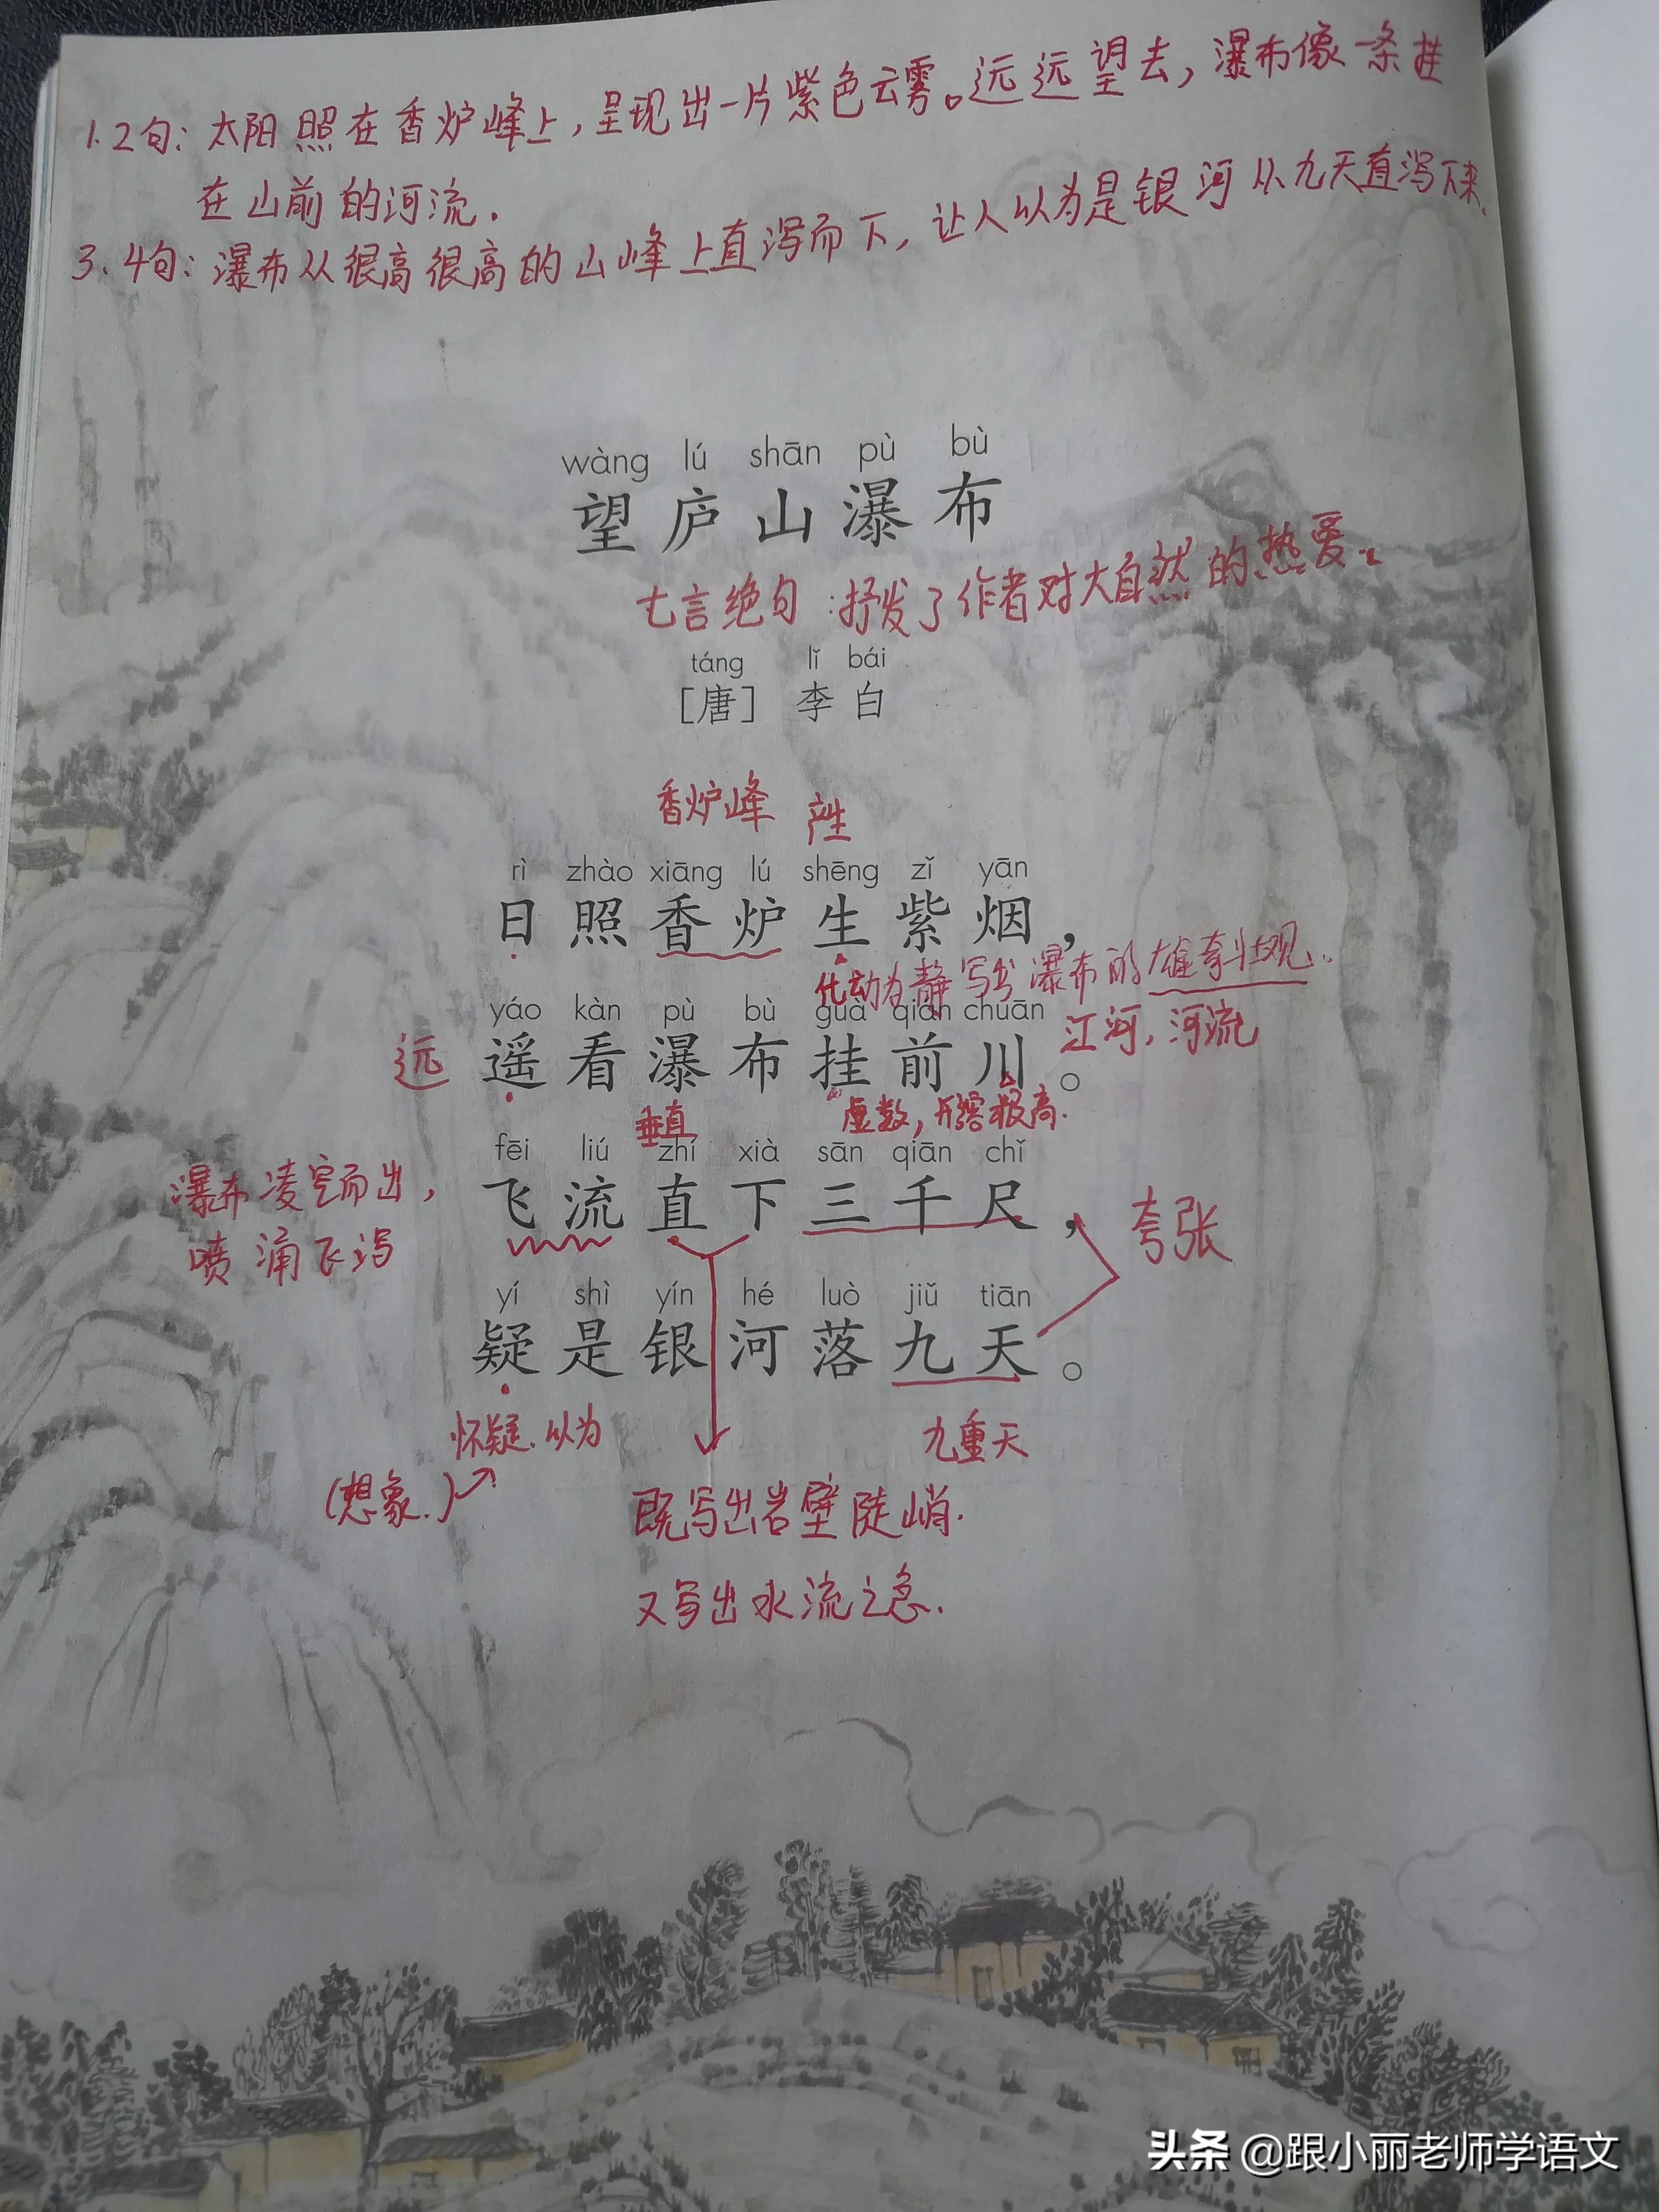 1.2句：太阳照在香炉峰上，呈现出一片紫色云雾。远远望去，瀑布像一条挂
在山前的河流.
3.4句：瀑布从很高很高的山峰上直泻而下，让人以为是银河从九天直泻下来.
wàng lú shān pù bù
望庐山瀑布
七言绝句：抒发了作者对大自然的热爱.
táng lǐ bái
[唐] 李白
香炉峰 产生
rì zhào xiāng lú shēng zǐ yān
日照香炉生紫烟，
化动为静写出瀑布的雄奇壮观.
yáo kàn pù bù guà qián chuān
江河，河流
远 遥看瀑布挂前川。
垂直 虚数，形容很高.
fēi liú zhí xià sān qiān chǐ
瀑布凌空而出， 飞流直下三千尺， 夸张
喷涌飞泻
yí shì yín hé luò jiǔ tiān
疑是银河落九天。
怀疑.以为 九重天
(想象.)
既写出岩壁陡峭.
又写出水流之急.
头条 @跟小丽老师学语文